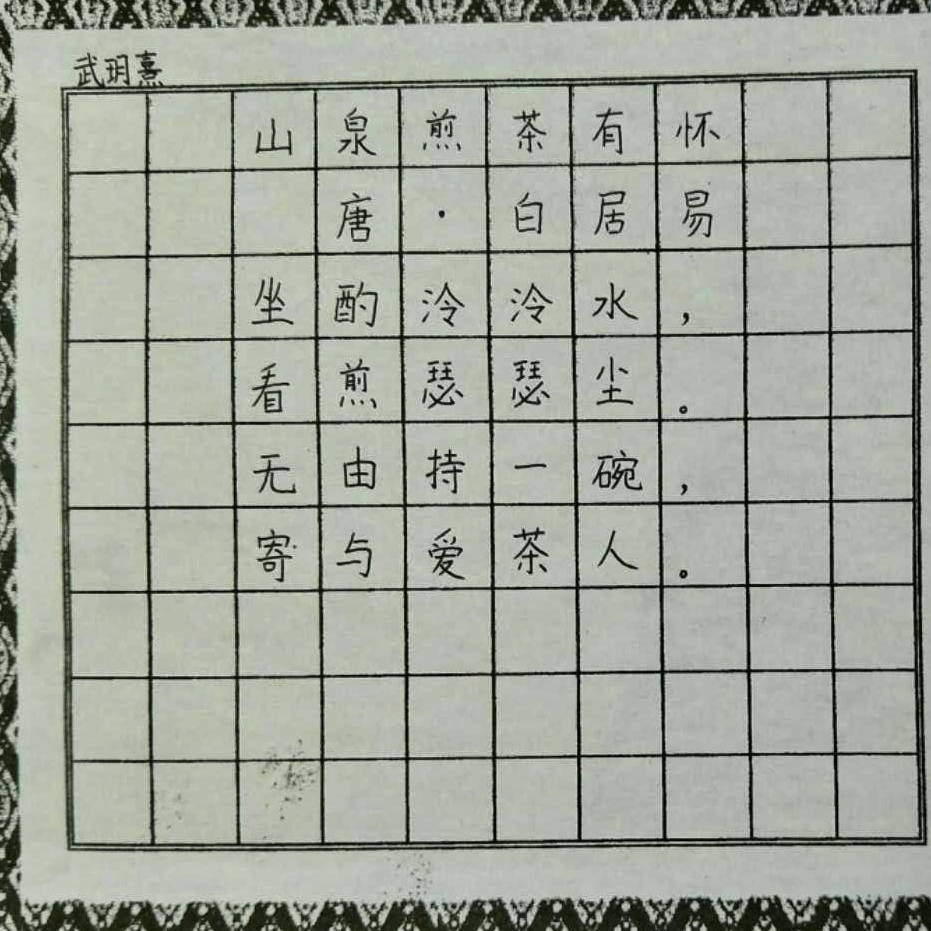 武玥熹
山泉煎茶有怀
唐·白居易
坐酌泠泠水，
看煎瑟瑟尘。
无由持一碗，
寄与爱茶人。